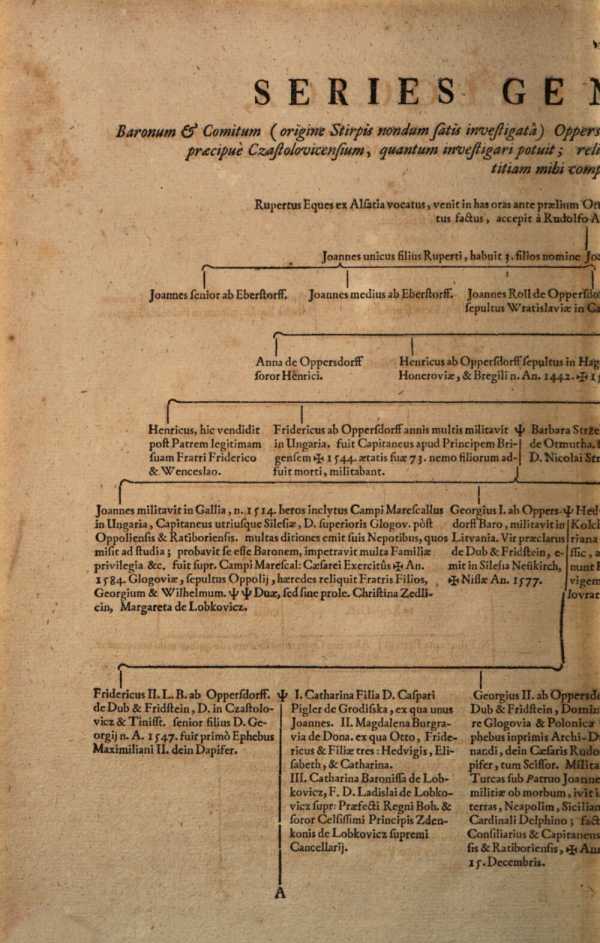 SERIES GEN
Baronum & Comitum (origine Stirpis nondum ſatis inveſtigatâ) Oppers
præcipuè Czaſtolovicenſium, quantum inveſtigari potuit; reli
titiam mihi comp
Rupertus Eques ex Alſatia vocatus, venit in has oras ante prælium Ott
tus factus, accepit à Rudolfo A
Joannes unicus filius Ruperti, habuit 3. filios nomine Joa
Joannes ſenior ab Eberſtorff.
Joannes medius ab Eberſtorff.
Joannes Roll de Oppersdo
ſepultus Wratislaviæ in Ca
Anna de Oppersdorff
ſoror Henrici.
Henricus ab Oppersdorff ſepultus in Hag
Honeroviæ, & Bregili n. An. 1442. ✠ 15
Henricus, hic vendidit
poſt Patrem legitimam
ſuam Fratri Friderico
& Wenceslao.
Fridericus ab Oppersdorff annis multis militavit
in Ungaria. fuit Capitaneus apud Principem Bri-
genſem ✠ 1544. ætatis ſuæ 73. nemo filiorum ad-
fuit morti, militabant.
Ψ Barbara Strze
de Otmutha. F
D. Nicolai Str
Joannes militavit in Gallia, n. 1514. heros inclytus Campi Mareſcallus
in Ungaria, Capitaneus utriuſque Sileſiæ, D. ſuperioris Glogov. pòſt
Oppolienſis & Ratiborienſis. multas ditiones emit ſuis Nepotibus, quos
miſit ad ſtudia; probavit ſe eſſe Baronem, impetravit multa Familiæ
privilegia &c. fuit ſupr. Campi Mareſcal: Cæſarei Exercitûs ✠ An.
1584. Glogoviæ, ſepultus Oppolij, hæredes reliquit Fratris Filios,
Georgium & Wilhelmum. Ψ Ψ Duæ, ſed ſine prole. Chriſtina Zedli-
cin, Margareta de Lobkovicz.
Georgius I. ab Oppers-
dorff Baro, militavit in
Litvania. Vir præclarus
de Dub & Fridſtein, e-
mit in Sileſia Neſkirch,
✠ Niſſæ An. 1577.
Ψ Hed
Kolch
riana
ſſic, a
nunt F
vigem
Jovrat
Fridericus II. L. B. ab Oppersdorff.
de Dub & Fridſtein, D. in Czaſtolo-
vicz & Tiniſſt. ſenior filius D. Ge-
orgij n. A. 1547. fuit primò Ephebus
Maximiliani II. dein Dapifer.
Ψ I. Catharina Filia D. Caſpari
Pigler de Grodiſska, ex qua unus
Joannes. II. Magdalena Burgra-
via de Dona. ex qua Otto, Fride-
ricus & Filiæ tres: Hedvigis, Eli-
ſabeth, & Catharina.
III. Catharina Baroniſſa de Lob-
kovicz, F. D. Ladislai de Lobko-
vicz ſupr: Præfecti Regni Boh. &
ſoror Celſiſſimi Principis Zden-
konis de Lobkovicz ſupremi
Cancellarij.
Georgius II. ab Oppersdo
Dub & Fridſtein, Domin
re Glogovia & Polonica
phebus inprimis Archi-D
nandi, dein Cæſaris Rudol
pifer, tum Sciſſor. Milita
Turcas ſub Patruo Joanne
militiæ ob morbum, ivit i
terras, Neapolim, Sicilian
Cardinali Delphino; fact
Conſiliarius & Capitaneus
ſis & Ratiborienſis, ✠ An
15. Decembris.
A